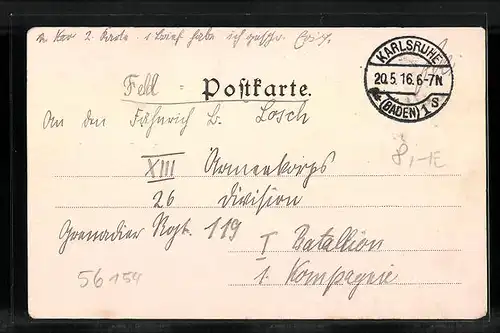 2. Karte. 1 Brief habe ich
KARLSRUHE
20.5.16.6-7N
(BADEN) 1 s
Feld = Postkarte.
An den Fähnrich L. Losch
8,-
XIII Armeekorps
26 Division
Grenadier Rgt. 119
I Batallion
1. Kompagnie
56154